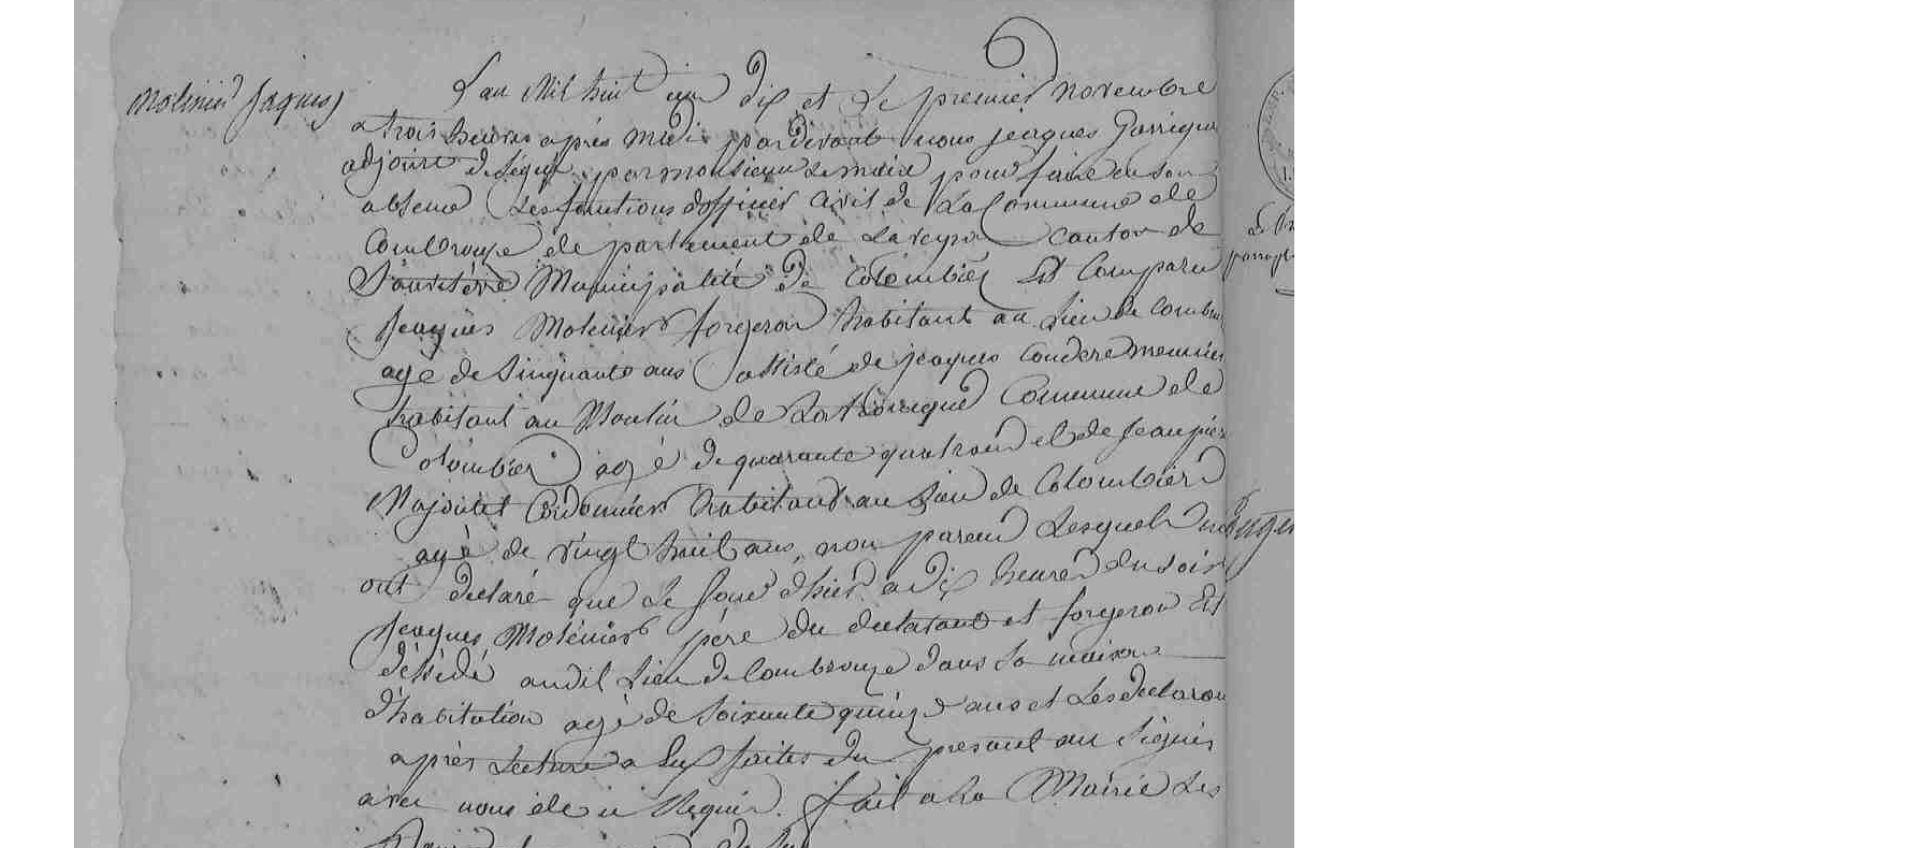 Molinier Jaques
L'an Mil huit cen dix et Le premier novembre
a trois heures après midi pardevant nous jeaques Garrigue
adjoint desegné par monsieur Le maire pour faire en son
absence Les fonctions d'officier civil de La Commune de
Combrouze de partement de Laveyron canton de
Sauveterre Municipalité de Colombiés Est Comparu
jeaques Molenier forgeron habitant au Lieu de Combrou
agé de Sinquante ans assisté de jeaques Couderc meunier
habitant au Moulin de Commune de
Colombiés agé de quarante quatre an et de jean pierre
Cordonnier habitant au Lieu de Colombiér
agé de vingt huit ans, non paren Lesquels
ont declaré que Le jour d'hier a dix heures du soir
jeaques Molenier père du declarant et forgeron Est
déssédé audit Lieu de Combrouze dans sa maison
d'habitation agé de soixante quinze ans et Les declaron
après Lecture a Eux faites du presant au signés
avec nous de ce Requis. fait a La Mairie Les